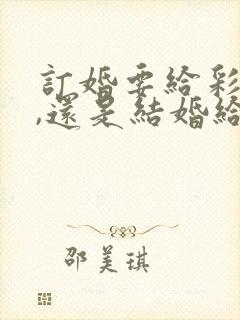 訂婚要給彩
,還是結婚給
邵美琪